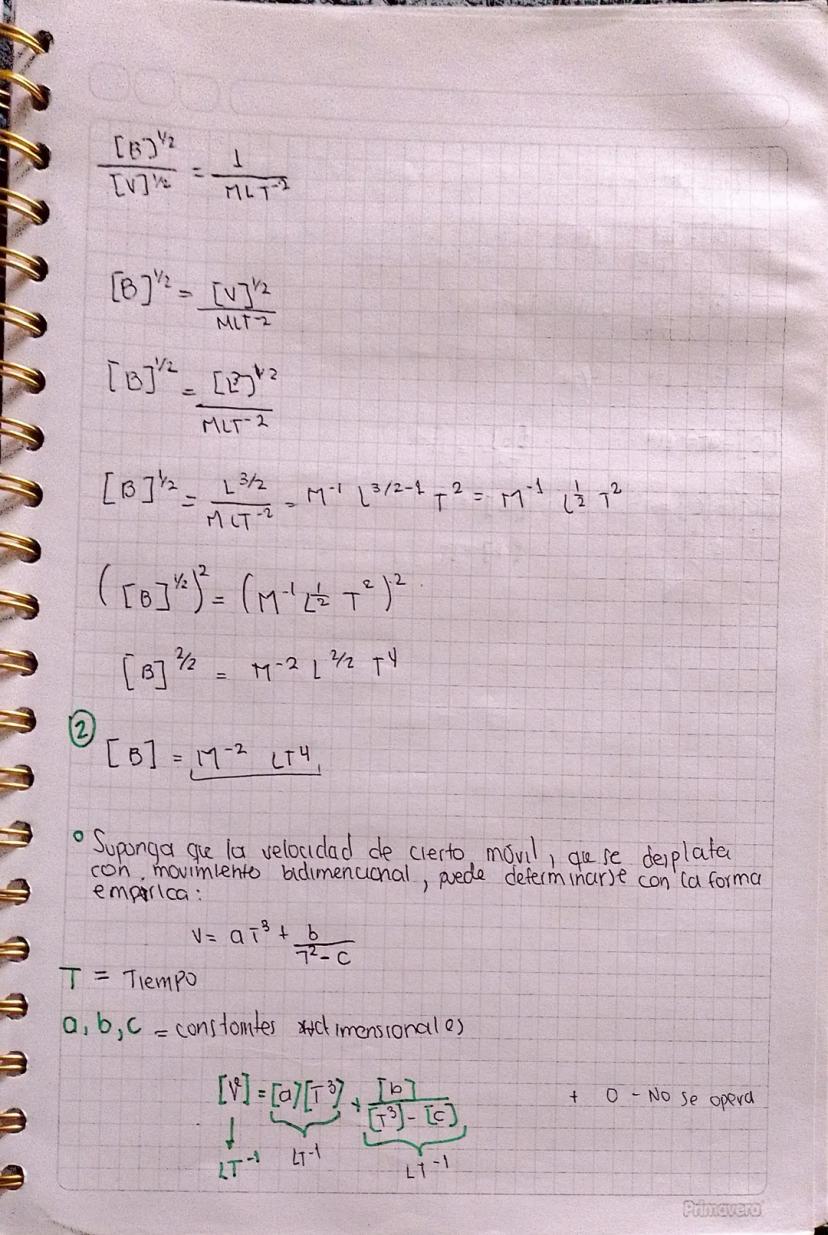 [B]^1/2 / [V]^1/2 = 1 / MLT^-2
[B]^1/2 = [V]^1/2 / MLT^-2
[B]^1/2 = [L^3]^1/2 / MLT^-2
[B]^1/2 = L^3/2 / MLT^-2 = M^-1 L^3/2-1 T^2 = M^-1 L^1/2 T^2
([B]^1/2)^2 = (M^-1 L^1/2 T^2)^2
[B]^2/2 = M^-2 L^2/2 T^4
② [B] = M^-2 LT^4
° Suponga que la velocidad de cierto móvil, que se desplata
con movimiento bidimencional, puede determinarse con la forma
empírica:
V = aT^3 + b / T^2 - c
T = Tiempo
a, b, c = constantes dimensionales
[V] = [a][T^3] + [b] / [T^3] - [c] + o - No se opera
LT^-1 LT^-1 LT^-1
Primavera